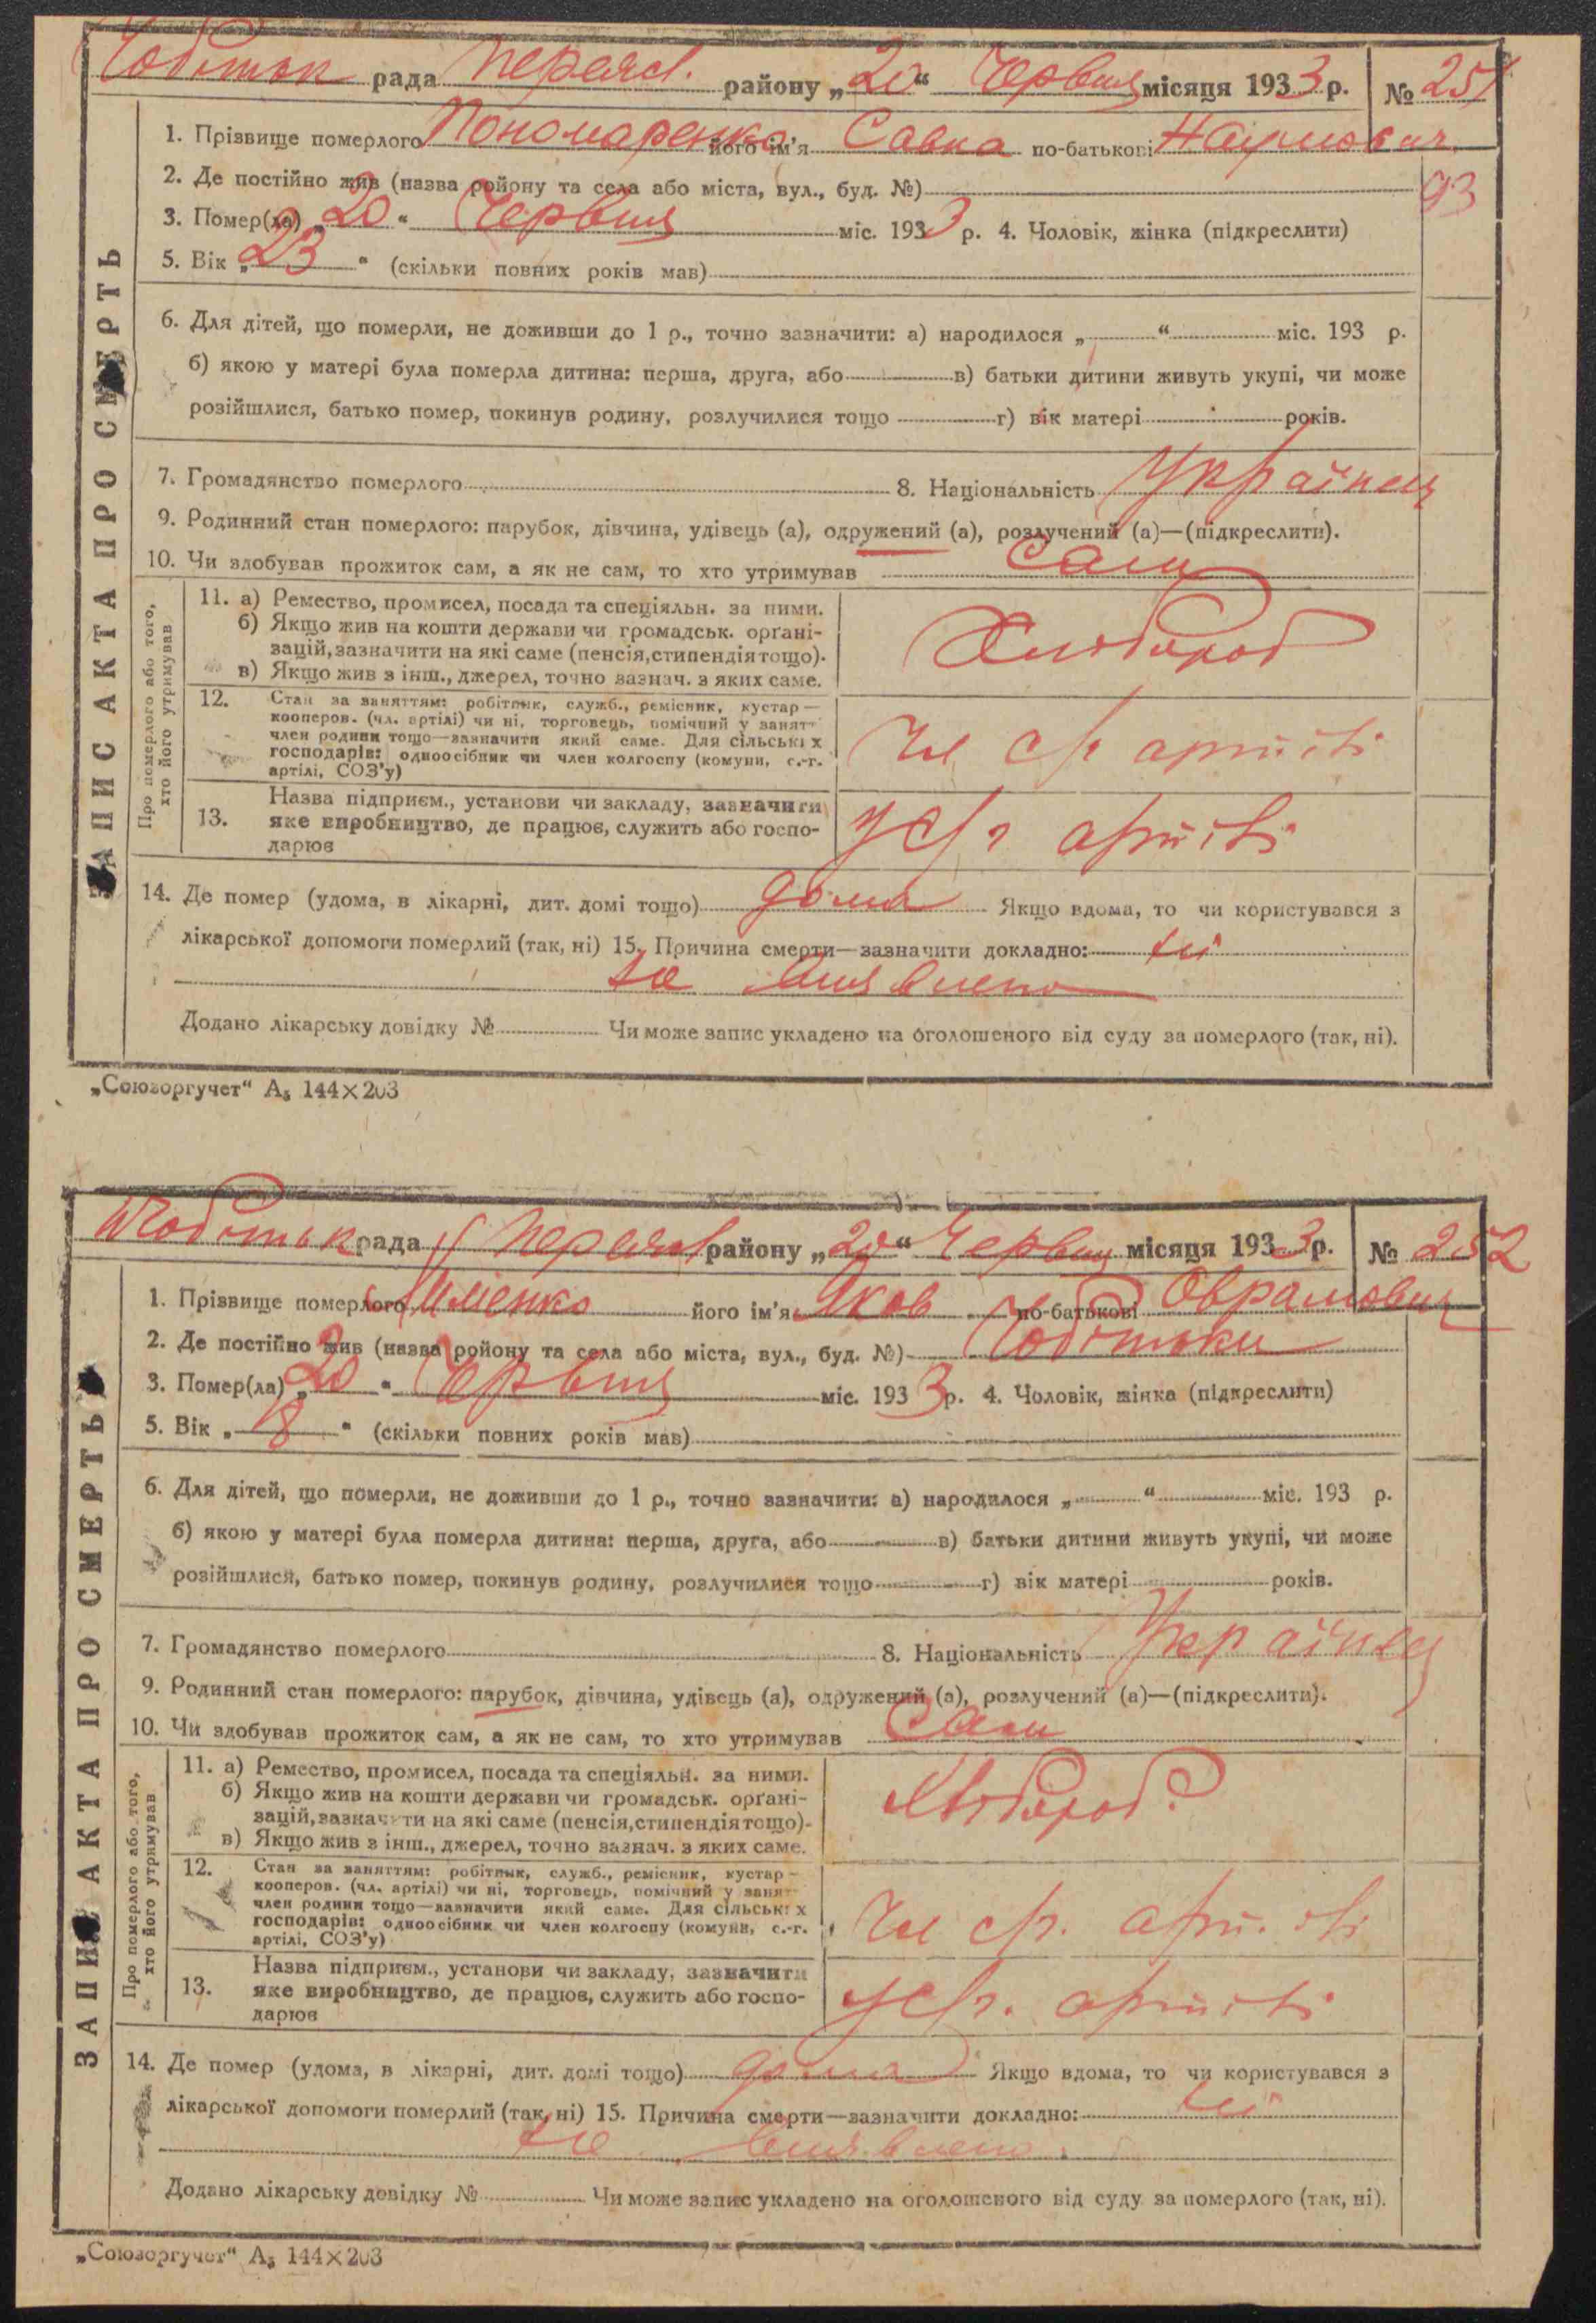 Чобітьк рада Переясл. району „20“ Червня місяця 1933 р. № 251
1. Прізвище померлого Пономаренко його ім'я Савка по-батькові Наумович
2. Де постійно жив (назва ройону та села або міста, вул., буд. №)
93
3. Помер(ла) „20“ Червня міс. 1933 р. 4. Чоловік, жінка (підкреслити)
5. Вік „23“ (скільки повних років мав)
6. Для дітей, що померли, не доживши до 1 р., точно зазначити: а) народилося „ “ міс. 193 р.
б) якою у матері була померла дитина: перша, друга, або в) батьки дитини живуть укупі, чи може
розійшлися, батько помер, покинув родину, розлучилися тощо г) вік матері років.
7. Громадянство померлого 8. Національність Українец
9. Родинний стан померлого: парубок, дівчина, удівець (а), одружений (а), розлучений (а)—(підкреслити).
10. Чи здобував прожиток сам, а як не сам, то хто утримував Сам
ЗАПИС АКТА ПРО СМЕРТЬ
Про померлого або того,
хто його утримував
11. а) Ремество, промисел, посада та спеціяльн. за ними.
б) Якщо жив на кошти держави чи громадськ. орґані-
зацій, зазначити на які саме (пенсія, стипендія тощо).
в) Якщо жив з інш., джерел, точно зазнач. з яких саме.
Хлібороб
12. Стан за заняттям: робітник, служб., ремісник, кустар—
кооперов. (чл. артілі) чи ні, торговець, помічний у занят-
член родини тощо—зазначити який саме. Для сільських
господарів: одноосібник чи член колгоспу (комуни, с.-г.
артілі, СОЗ'у)
Чл с/г артілі
13. Назва підприєм., установи чи закладу, зазначити
яке виробництво, де працює, служить або госпо-
дарює
У с/г артілі
14. Де помер (удома, в лікарні, дит. домі тощо) дома Якщо вдома, то чи користувався з
лікарської допомоги померлий (так, ні) 15. Причина смерти—зазначити докладно: ні
не виявлено
Додано лікарську довідку № Чи може запис укладено на оголошеного від суду за померлого (так, ні).
„Союзоргучет“ А₅ 144×203
Чобітьк рада Переясл району „20“ Червня місяця 1933 р. № 252
1. Прізвище померлого його ім'я Яков по-батькові Оврамович
2. Де постійно жив (назва ройону та села або міста, вул., буд. №) Чобітьки
3. Помер(ла) „20“ Червня міс. 1933 р. 4. Чоловік, жінка (підкреслити)
5. Вік „18“ (скільки повних років мав)
6. Для дітей, що померли, не доживши до 1 р., точно зазначити: а) народилося „ “ міс. 193 р.
б) якою у матері була померла дитина: перша, друга, або в) батьки дитини живуть укупі, чи може
розійшлися, батько помер, покинув родину, розлучилися тощо г) вік матері років.
7. Громадянство померлого 8. Національність Українец
9. Родинний стан померлого: парубок, дівчина, удівець (а), одружений (а), розлучений (а)—(підкреслити).
10. Чи здобував прожиток сам, а як не сам, то хто утримував Сам
ЗАПИС АКТА ПРО СМЕРТЬ
Про померлого або того,
хто його утримував
11. а) Ремество, промисел, посада та спеціяльн. за ними.
б) Якщо жив на кошти держави чи громадськ. орґані-
зацій, зазначити на які саме (пенсія, стипендія тощо)-
в) Якщо жив з інш., джерел, точно зазнач. з яких саме.
Хлібороб
12. Стан за заняттям: робітник, служб., ремісник, кустар—
кооперов. (чл. артілі) чи ні, торговець, помічний у занят-
член родини тощо—зазначити який саме. Для сільських
господарів: одноосібник чи член колгоспу (комуни, с.-г.
артілі, СОЗ'у)
Чл с/г. артілі
13. Назва підприєм., установи чи закладу, зазначити
яке виробництво, де працює, служить або госпо-
дарює
У с/г. артілі
14. Де помер (удома, в лікарні, дит. домі тощо) дома Якщо вдома, то чи користувався з
лікарської допомоги померлий (так, ні) 15. Причина смерти—зазначити докладно: ні
не виявлено.
Додано лікарську довідку № Чи може запис укладено на оголошеного від суду за померлого (так, ні).
„Союзоргучет“ А₅ 144×203